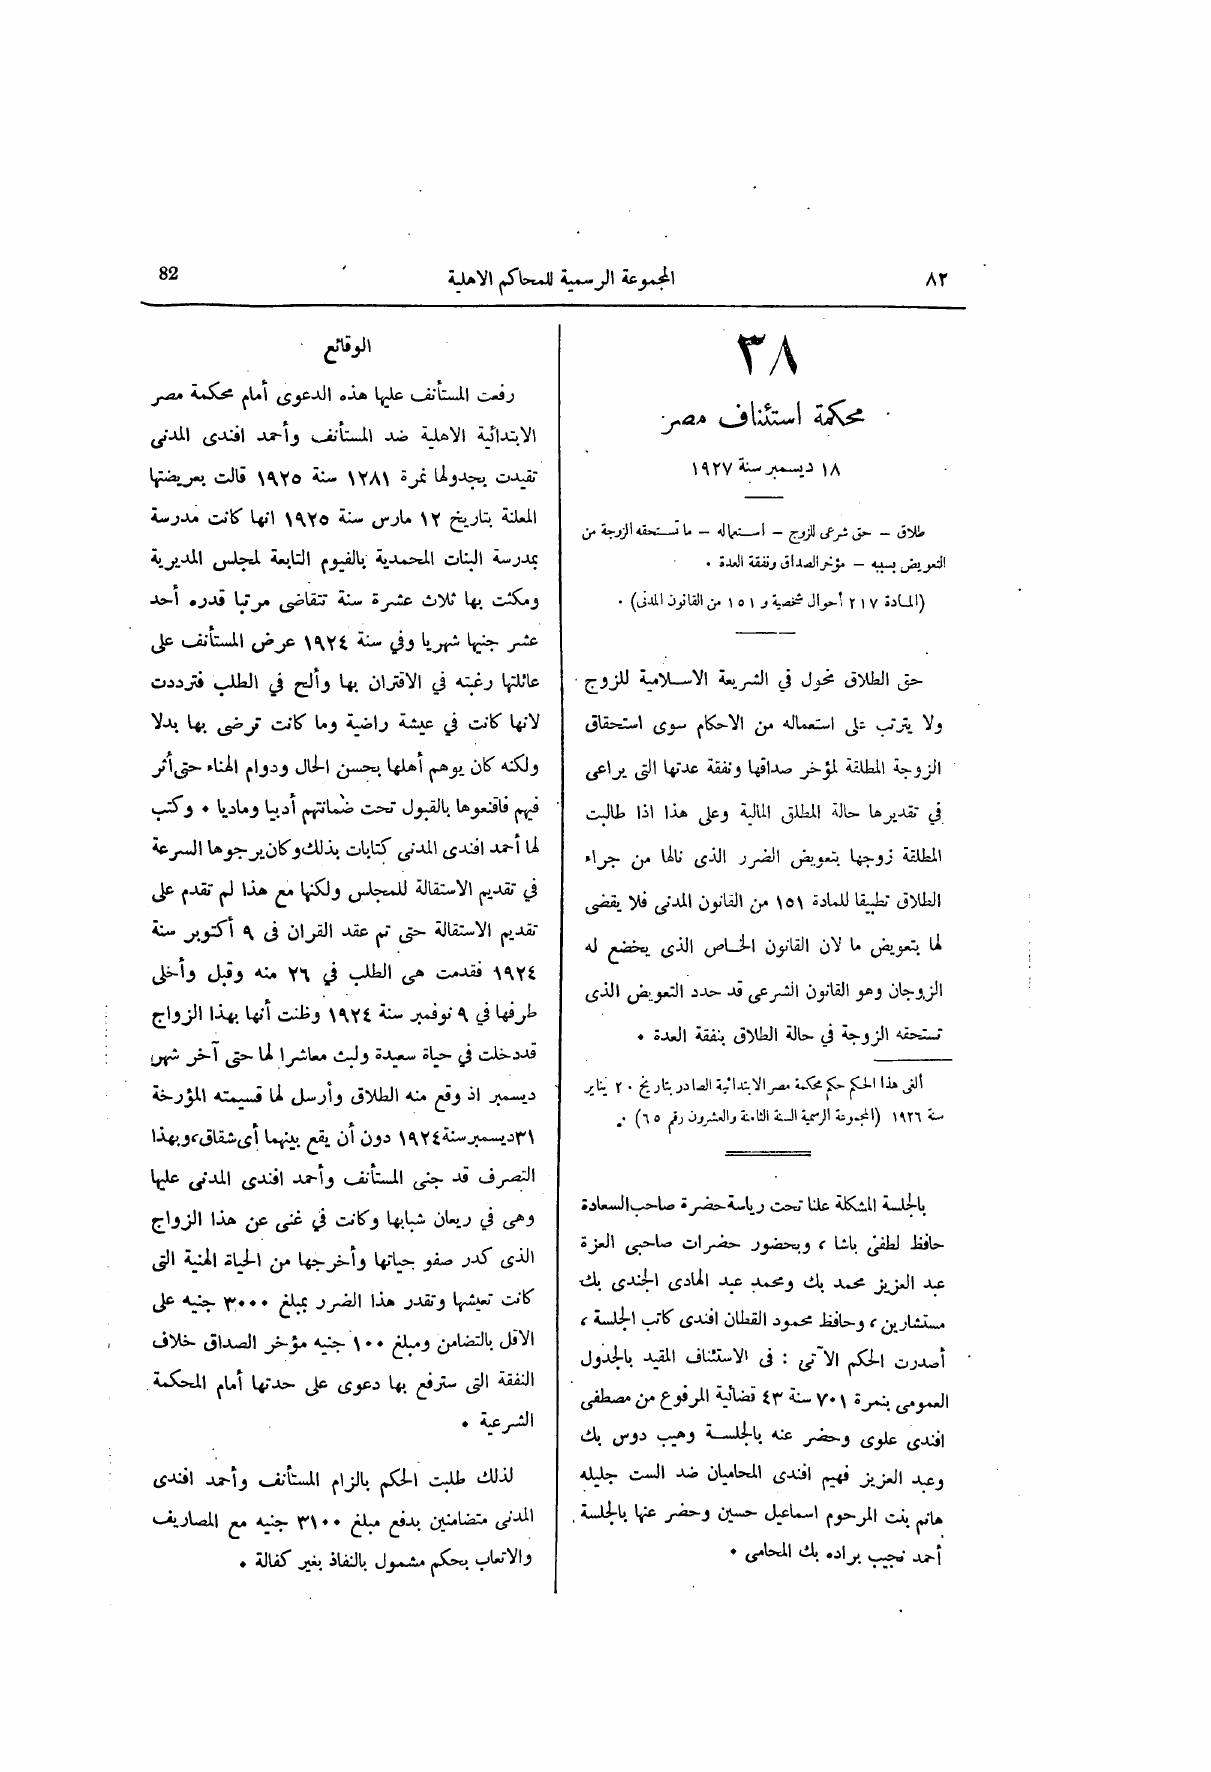 ٨٢
المجموعة الرسمية للمحاكم الاهلية
82
٣٨
محكمة استئناف مصر
١٨ ديسمبر سنة ١٩٢٧
طلاق – حق شرعى للزوج – استعماله – ما تستحقه الزوجة من
التعويض بسببه – مؤخر الصداق ونفقة العدة .
(المادة ٢١٧ أحوال شخصية و ١٥١ من القانون المدنى) .
حق الطلاق مخول في الشريعة الاسلامية للزوج
ولا يترتب على استعماله من الاحكام سوى استحقاق
الزوجة المطلقة لمؤخر صداقها ونفقة عدتها التى يراعى
في تقديرها حالة المطلق المالية وعلى هذا اذا طالبت
المطلقة زوجها بتعويض الضرر الذى نالها من جراء
الطلاق تطبيقا للمادة ١٥١ من القانون المدنى فلا يقضى
لها بتعويض ما لان القانون الخاص الذى يخضع له
الزوجان وهو القانون الشرعى قد حدد التعويض الذى
تستحقه الزوجة في حالة الطلاق بنفقة العدة .
ألغى هذا الحكم حكم محكمة مصر الابتدائية الصادر بتاريخ ٢٠ يناير
سنة ١٩٢٦ (المجموعة الرسمية السنة الثامنة والعشرون رقم ٦٥) .
بالجلسة المشكلة علنا تحت رياسة حضرة صاحب السعادة
حافظ لطفى باشا ، وبحضور حضرات صاحبى العزة
عبد العزيز محمد بك ومحمد عبد الهادى الجندى بك
مستشارين ، وحافظ محمود القطان افندى كاتب الجلسة ،
أصدرت الحكم الآتى : فى الاستئناف المقيد بالجدول
العمومى بنمرة ٧٠١ سنة ٤٣ قضائية المرفوع من مصطفى
افندى علوى وحضر عنه بالجلسة وهيب دوس بك
وعبد العزيز فهيم افندى المحاميان ضد الست جليله
هانم بنت المرحوم اسماعيل حسين وحضر عنها بالجلسة
أحمد نجيب براده بك المحامى .
الوقائع
رفعت المستأنف عليها هذه الدعوى أمام محكمة مصر
الابتدائية الاهلية ضد المستأنف وأحمد افندى المدنى
تقيدت بجدولها نمرة ١٢٨١ سنة ١٩٢٥ قالت بعريضتها
المعلنة بتاريخ ١٢ مارس سنة ١٩٢٥ انها كانت مدرسة
بمدرسة البنات المحمدية بالفيوم التابعة لمجلس المديرية
ومكثت بها ثلاث عشرة سنة تتقاضى مرتبا قدره أحد
عشر جنيها شهريا وفي سنة ١٩٢٤ عرض المستأنف على
عائلتها رغبته في الاقتران بها وألح في الطلب فترددت
لانها كانت في عيشة راضية وما كانت ترضى بها بدلا
ولكنه كان يوهم أهلها بحسن الحال ودوام الهناء حتى أثر
فيهم فاقنعوها بالقبول تحت ضمانتهم أدبيا وماديا . وكتب
لها أحمد افندى المدنى كتابات بذلك وكان يرجوها السرعة
في تقديم الاستقالة للمجلس ولكنها مع هذا لم تقدم على
تقديم الاستقالة حتى تم عقد القران فى ٩ أكتوبر سنة
١٩٢٤ فقدمت هى الطلب في ٢٦ منه وقبل وأخلى
طرفها في ٩ نوفمبر سنة ١٩٢٤ وظنت أنها بهذا الزواج
قد دخلت في حياة سعيدة ولبث معاشرا لها حتى آخر شهر
ديسمبر اذ وقع منه الطلاق وأرسل لها قسيمته المؤرخة
٣١ ديسمبر سنة ١٩٢٤ دون أن يقع بينهما أى شقاق، وبهذا
التصرف قد جنى المستأنف وأحمد افندى المدنى عليها
وهى في ريعان شبابها وكانت في غنى عن هذا الزواج
الذى كدر صفو حياتها وأخرجها من الحياة الهنية التى
كانت تعيشها وتقدر هذا الضرر بمبلغ ٣٠٠٠ جنيه على
الاقل بالتضامن ومبلغ ١٠٠ جنيه مؤخر الصداق خلاف
النفقة التى سترفع بها دعوى على حدتها أمام المحكمة
الشرعية .
لذلك طلبت الحكم بالزام المستأنف وأحمد افندى
المدنى متضامنين بدفع مبلغ ٣١٠٠ جنيه مع المصاريف
والاتعاب بحكم مشمول بالنفاذ بغير كفالة .